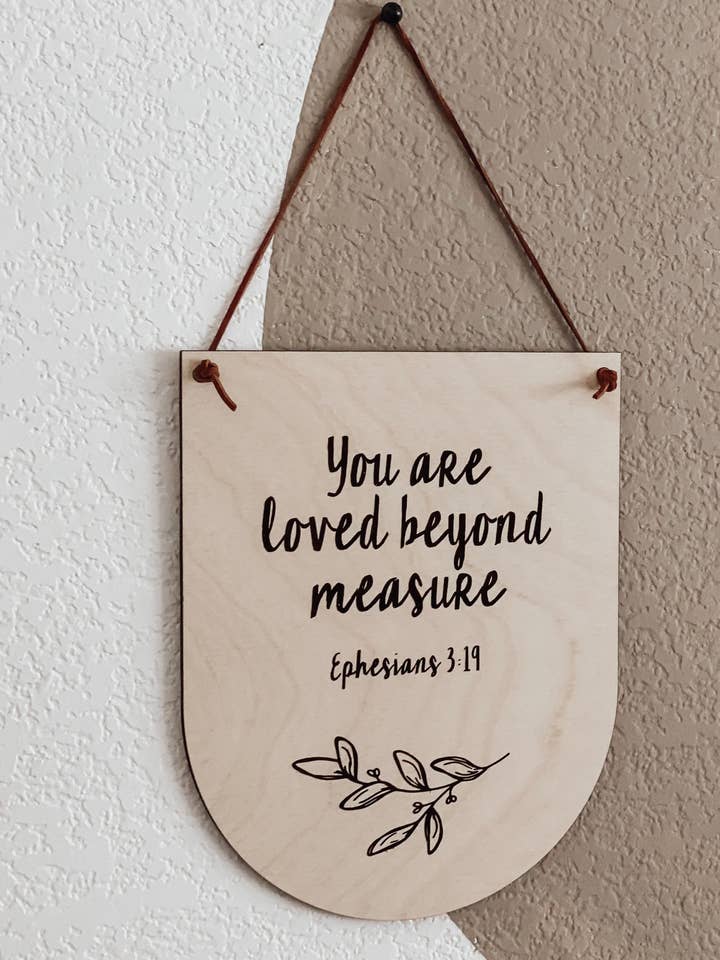 You are
loved beyond
measure
Ephesians 3:19